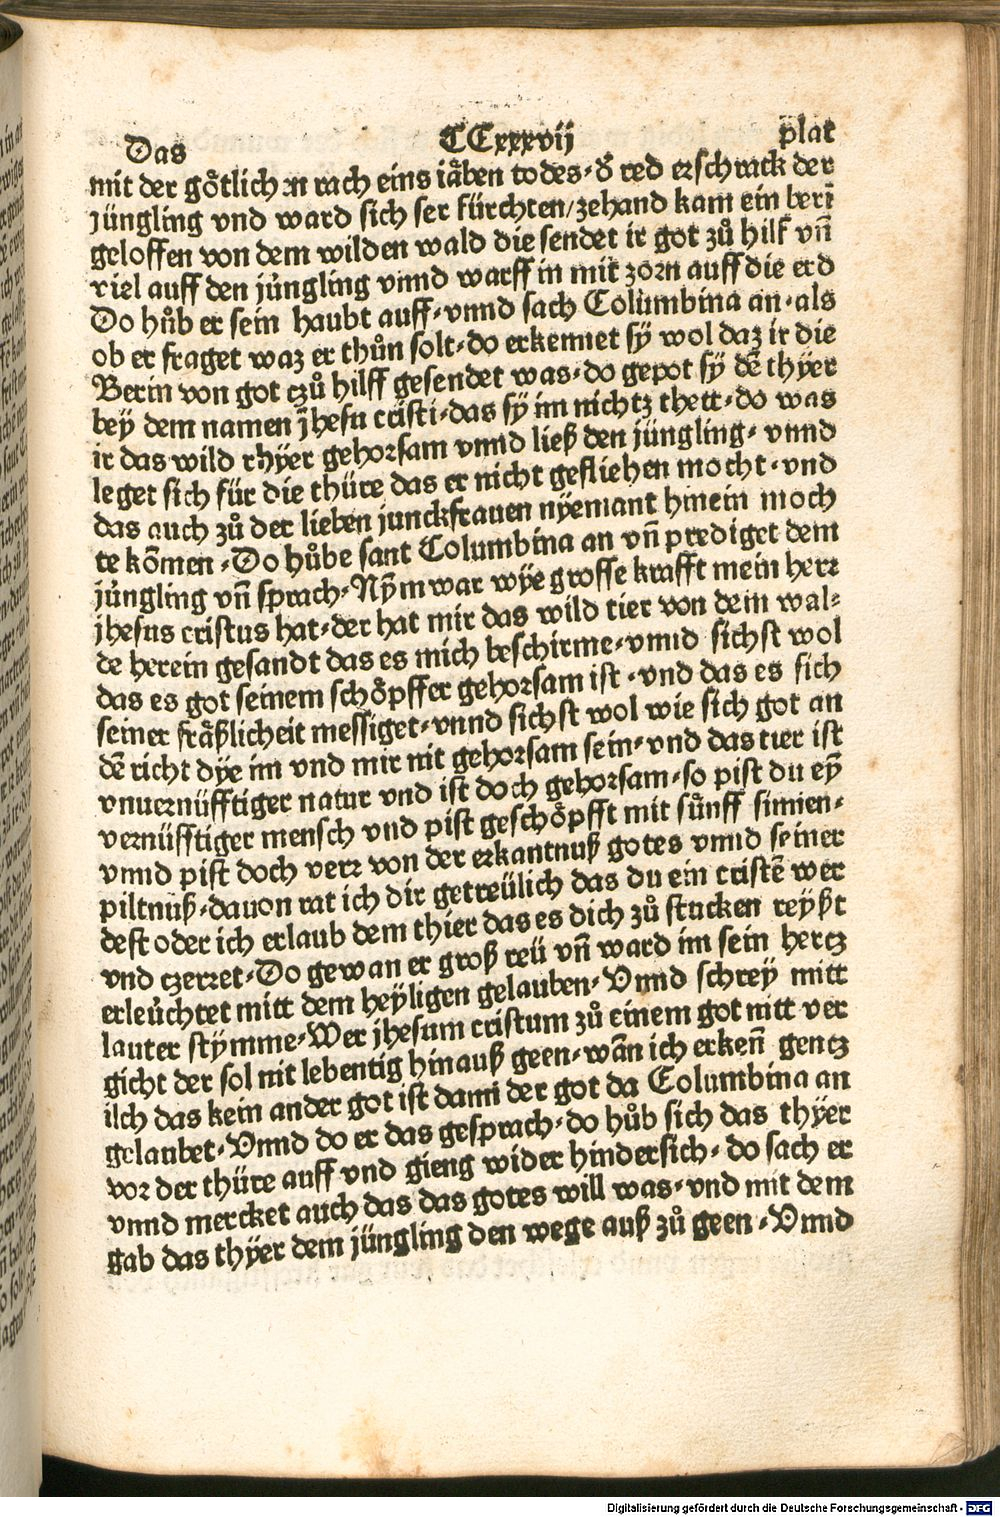 Das CCxxxvij plat
mit der goͤtlichen rach eins iaͤben todes · d̄ red erschrack der
jüngling vnd ward sich ser fürchten/zehand kam ein beri̅
geloffen von dem wilden wald die sendet ir got zuͦ hilf vn̅
viel auff den jüngling vnnd warff in mit zorn auff die erd
Do huͦb er sein haubt auff · vnnd sach Columbina an · als
ob er fraget waz er thuͦn solt · do erkennet sÿ wol daz ir die
Berin von got czuͦ hilff gesendet was · do gepot sÿ de̅ thÿer
beÿ dem namen jhesu cristi · das sÿ im nichtz thett · do was
ir das wild thÿer gehorsam vnnd ließ den jüngling · vnnd
leget sich für die thüre das er nicht gefliehen mocht · vnd
das auch zuͦ der lieben junckfrauen nÿemant hinein moch
te ko̅men · Do huͦbe sant Columbina an vn̅ prediget dem
jüngling vn̅ sprach · Nÿm war wÿe grosse krafft mein herr
jhesus cristus hat · der hat mir das wild tier von dem wal⸗
de herein gesandt das es mich beschirme · vnnd sichst wol
das es got seinem schoͤpffer gehorsam ist · vnd das es sich
seiner fraͤßlicheit messiget · vnnd sichst wol wie sich got an
de̅ richt dÿe im vnd mir nit gehorsam sein · vnd das tier ist
vnuernüfftiger natur vnd ist doch gehorsam · so pist du eÿ̅
vernüfftiger mensch vnd pist geschoͤpfft mit fünff sinnen ·
vnnd pist doch verr von der erkantnuß gotes vnnd seiner
piltnüß · dauon rat ich dir getreülich das du ein criste̅ wer
dest oder ich erlaub dem thier das es dich zuͦ stucken reÿßt
vnd czerret · Do gewan er groß reü vn̅ ward im sein hercz
erleüchtet mitt dem heÿligen gelauben · Vnnd schreÿ mitt
lauter stÿmme · Wer jhesum cristum zuͦ einem got nitt ver
gicht der sol nit lebentig hinauß geen · wa̅n ich erken̅ gentz
ilch das kein ander got ist dann der got da Columbina an
gelaubet · Vnnd do er das gesprach · do huͦb sich das thÿer
vor der thüre auff vnd gieng wider hindersich · do sach er
vnnd mercket auch das das gotes will was · vnd mit dem
gab das thÿer dem jüngling den wege auß zuͦ geen · Vnnd
Digitalisierung gefördert durch die Deutsche Forschungsgemeinschaft - DFG